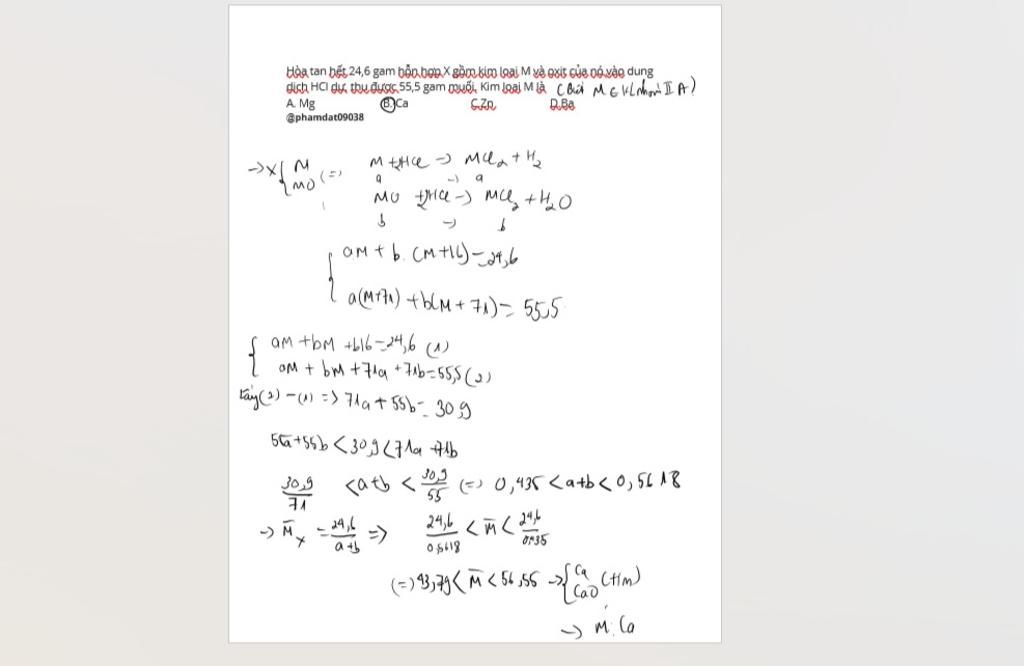 Hòa tan hết 24,6 gam hỗn hợp X gồm kim loại M và oxit của nó vào dung
dịch HCl dư, thu được 55,5 gam muối. Kim loại M là (Biết M ∈ KL nhóm II A)
A. Mg B. Ca C.Zn D.Ba
@phamdat09038
-> X { M MO (=) M + 2HCl -> MCl2 + H2
a -> a
MO + 2HCl -> MCl2 + H2O
b -> b
{ aM + b. (M+16) = 24,6
a(M+71) + b(M + 71) = 55,5
{ aM + bM + b16 = 24,6 (1)
aM + bM + 71a + 71b = 55,5 (2)
Lấy (2) - (1) => 71a + 55b = 30,9
55a + 55b < 30,9 < 71a + 71b
30,9/71 < a+b < 30,9/55 (=) 0,435 < a+b < 0,5618
-> M̄x = 24,6/a+b => 24,6/0,5618 < M̄ < 24,6/0,435
(=) 43,79 < M̄ < 56,55 -> { Ca CaO (t/m)
-> M: Ca